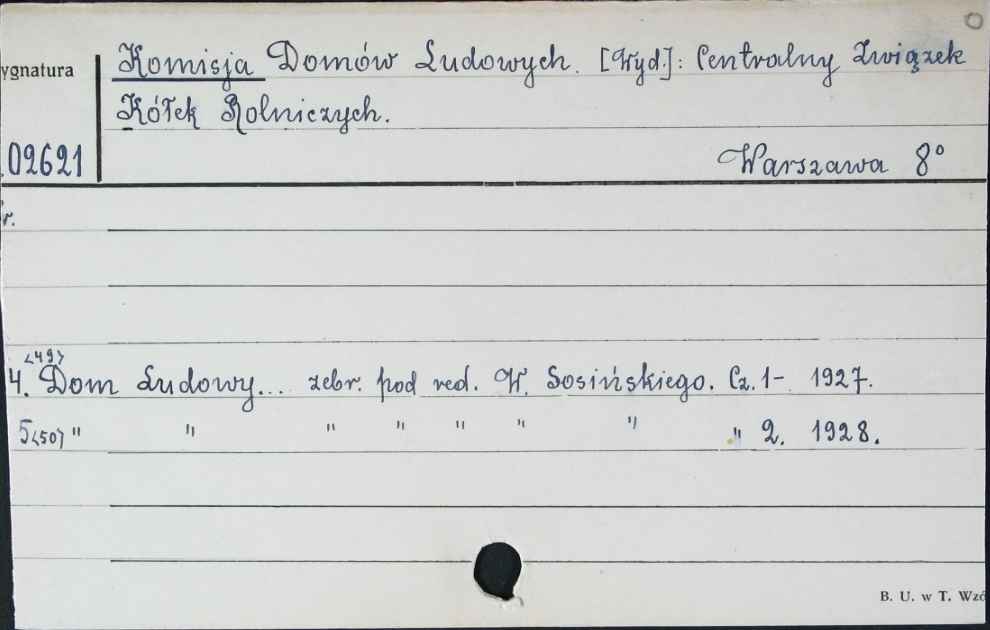 Komisja Domów Ludowych. [Wyd.]: Centralny Związek
ygnatura
Kółek Rolniczych.
02621
Warszawa 8°
r.
<49>
4. Dom Ludowy... zebr. pod red. W. Sosińskiego. Cz. 1- 1927.
5<50> " " " " " " " " 2. 1928.
B. U. w T. Wzó